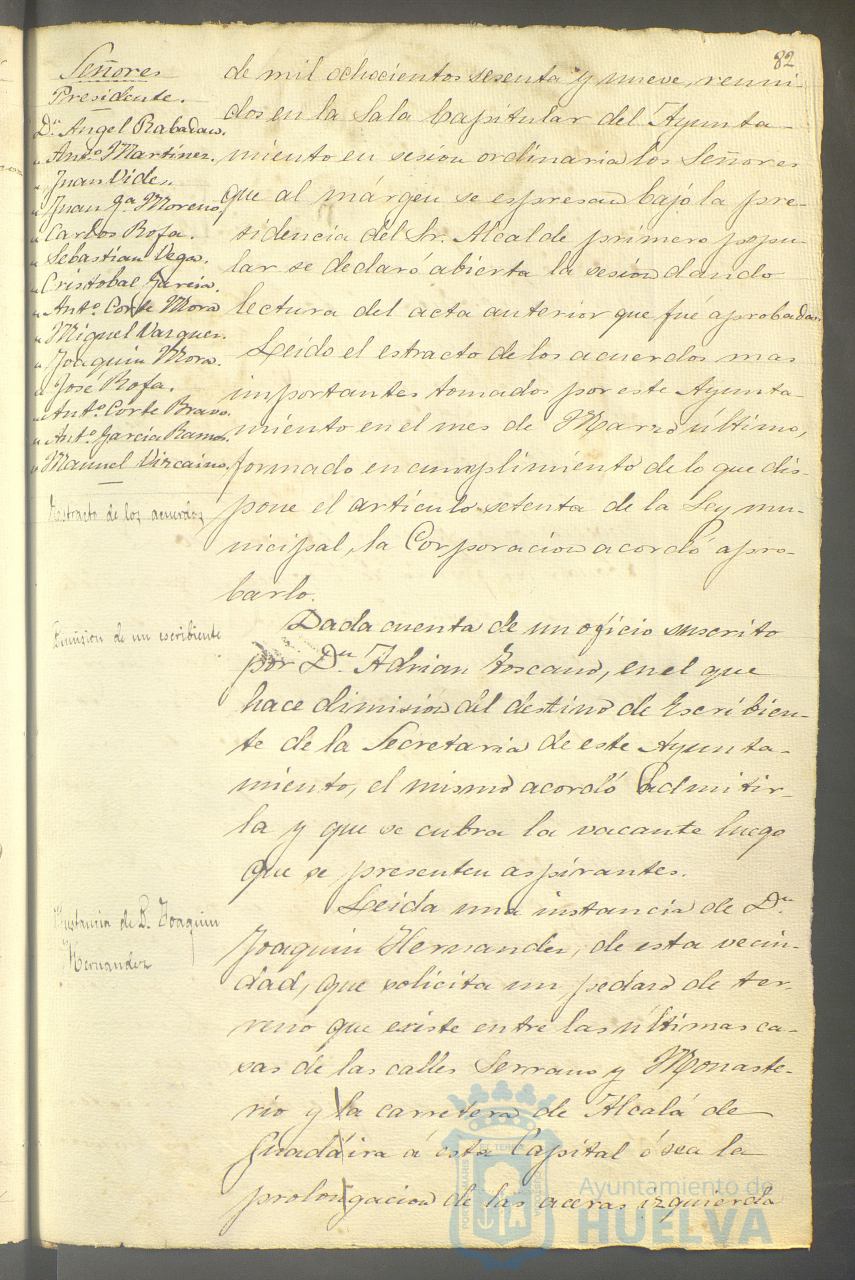 82
Señores
Presidente.
Dn. Angel Rabadan.
" Anto. Martinez.
" Juan Vides.
" Juan Ga. Moreno.
" Carlos Rofa.
" Sebastian Vega.
" Cristobal Garcia.
" Anto. Corte Mora
" Miguel Vazquez.
" Joaquin Mora.
" José Rofa.
" Anto. Corte Bravo.
" Anto. García Ramos.
" Manuel Vizcaino.
de mil ochocientos sesenta y nueve, reuni-
dos en la Sala Capitular del Ayunta-
miento en sesion ordinaria los Señores
que al márgen se espresan bajo la pre-
sidencia del Sr. Alcalde primero popu-
lar se declaró abierta la sesion dando
lectura del acta anterior que fué aprobada.
Estracto de los acuerdos
Leido el estracto de los acuerdos mas
importantes tomados por este Ayunta-
miento en el mes de Marzo último,
formado en cumplimiento de lo que dis-
pone el artículo setenta de la Ley mu-
nicipal, la Corporacion acordó apro-
barlo.
Dimision de un escribiente
Dada cuenta de un oficio suscrito
por Dn. Adrian Toscano, en el que
hace dimision del destino de Escribien-
te de la Secretaria de este Ayunta-
miento, el mismo acordó admitir-
la y que se cubra la vacante luego
que se presenten aspirantes.
Instancia de D. Joaquin
Hernandez
Leida una instancia de Dn.
Joaquin Hernandez, de esta vecin-
dad, que solicita un pedazo de ter-
reno que existe entre las últimas ca-
sas de las calles Serrano y Monaste-
rio y la carretera de Alcalá de
Guadaira á esta Capital ó sea la
prolongacion de las aceras izquierda
Ayuntamiento de
HUELVA